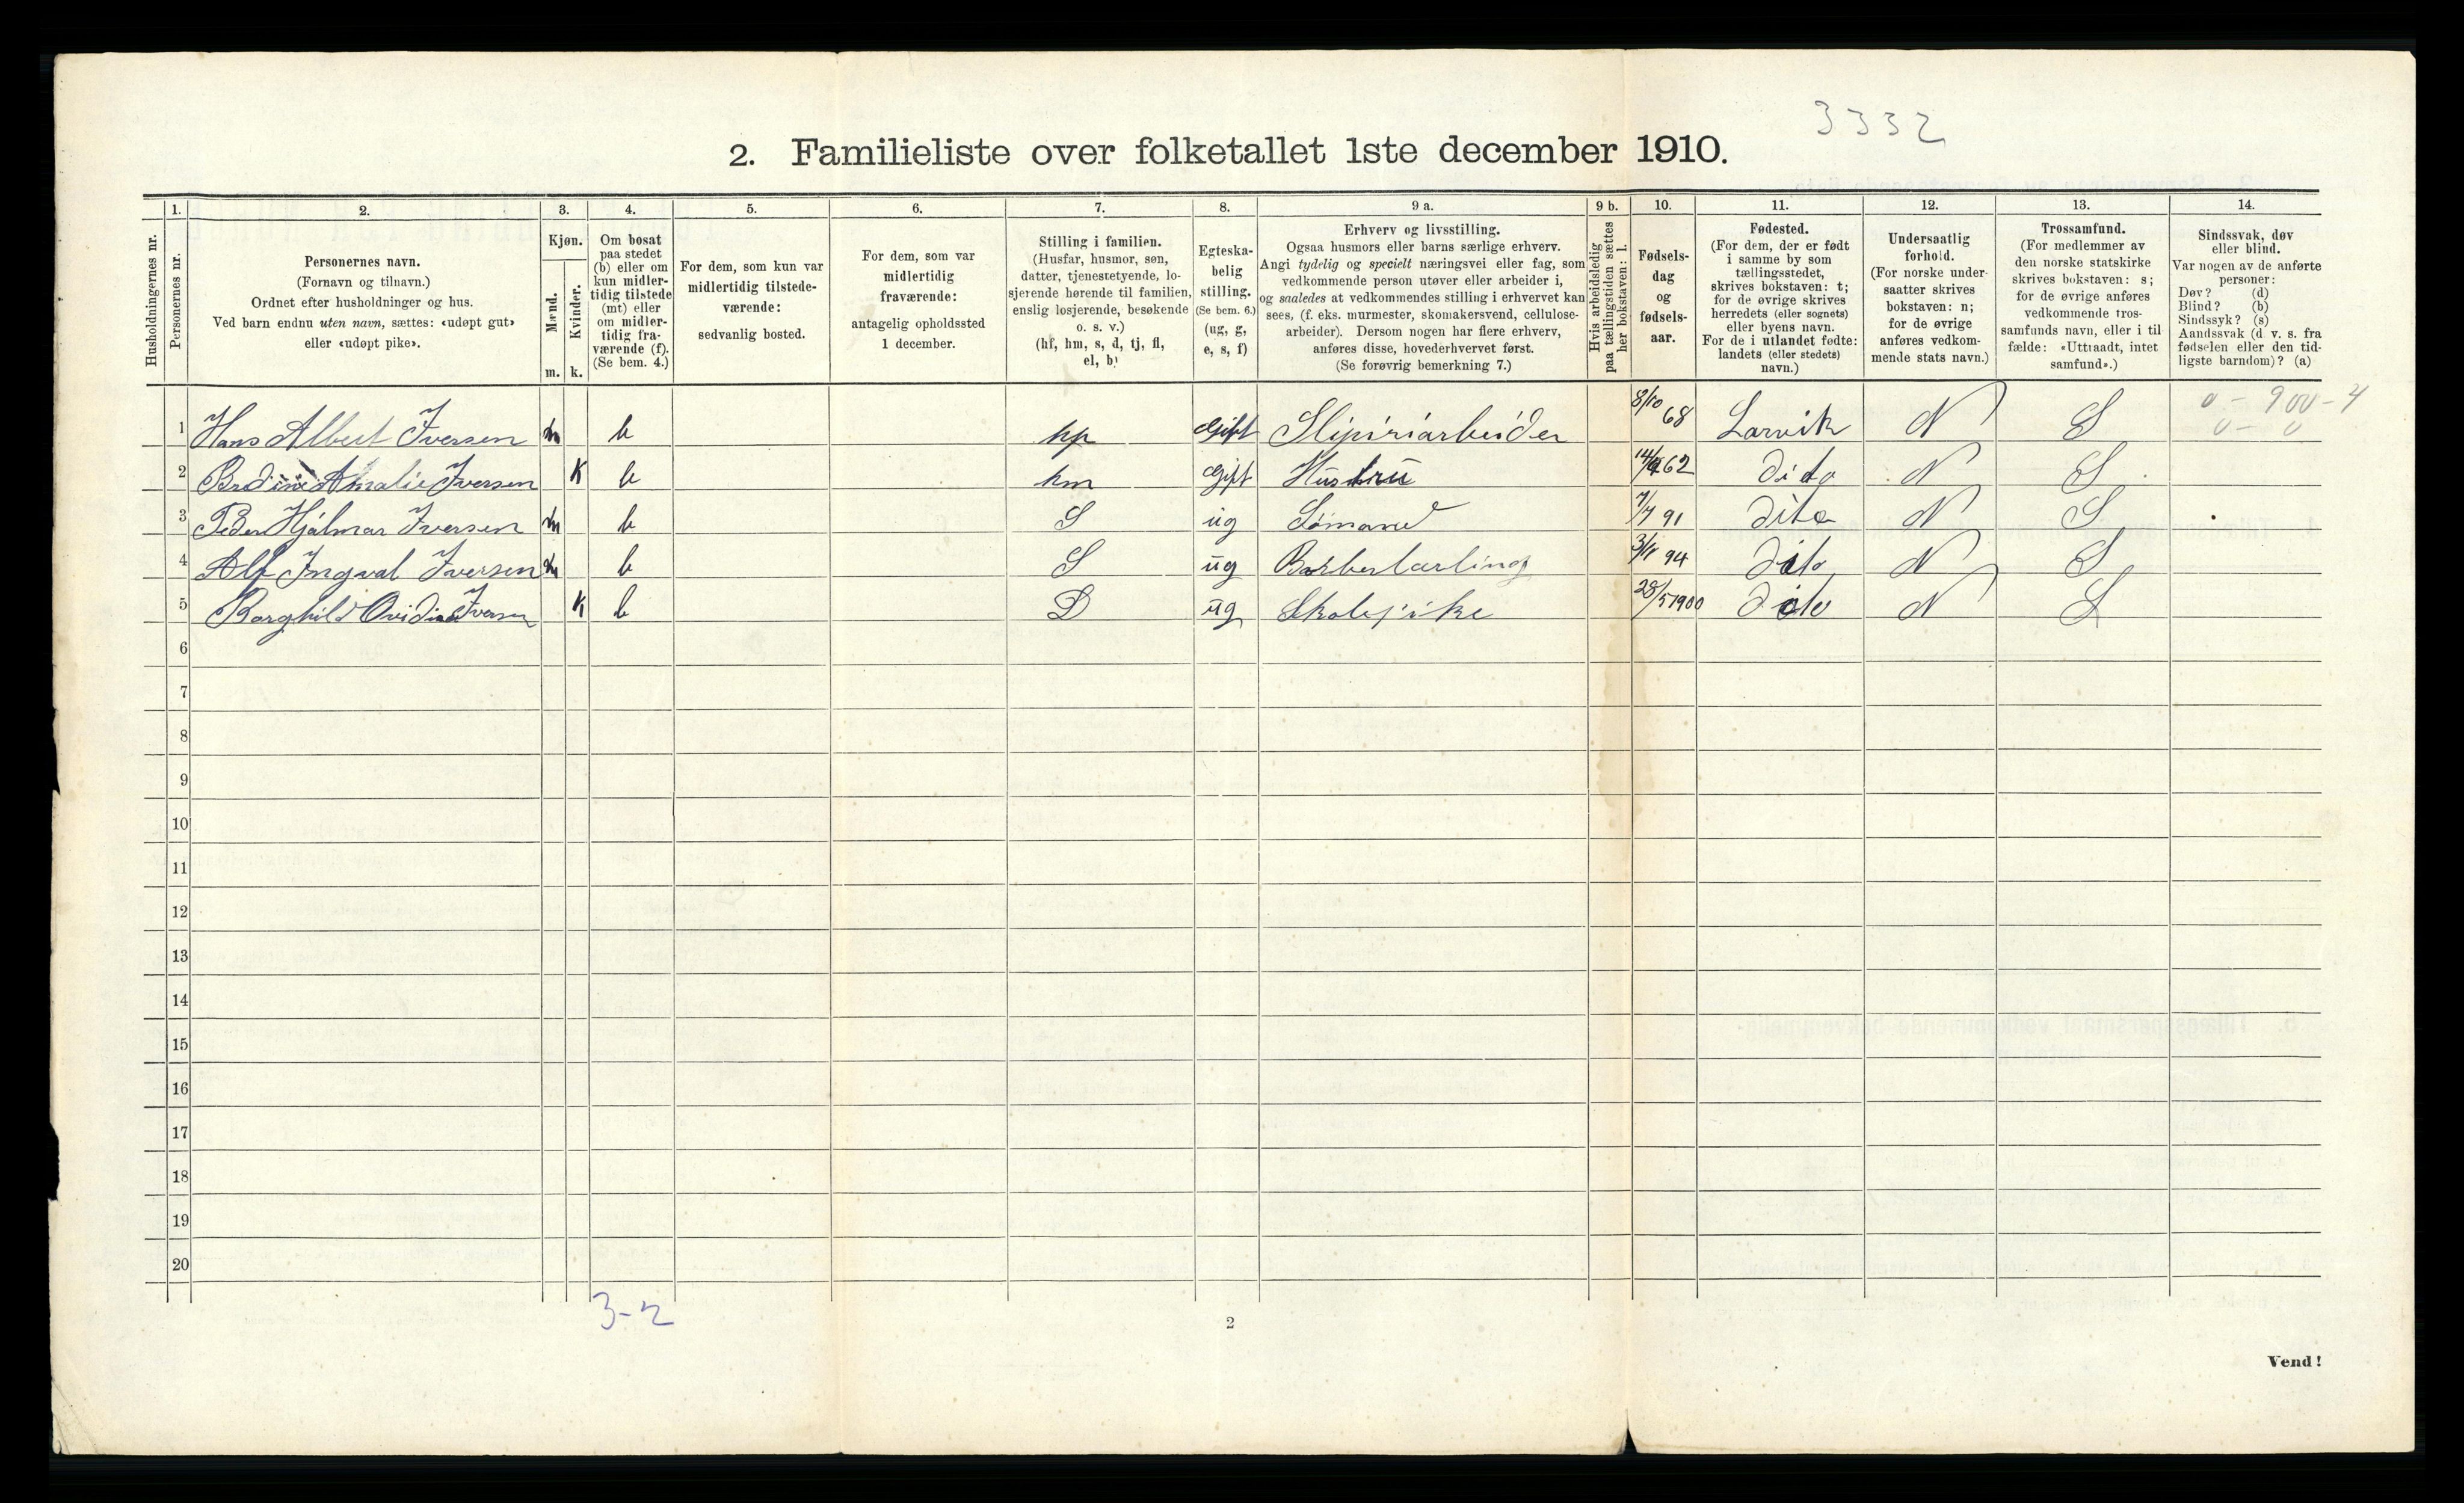 3332
2. Familieliste over folketallet 1ste december 1910.
Husholdningernes nr.
1.
Personernes nr.
2.
Personernes navn.
(Fornavn og tilnavn.)
Ordnet efter husholdninger og hus.
Ved barn endnu uten navn, sættes: «udøpt gut»
eller «udøpt pike».
3.
Kjøn.
Mænd.
Kvinder.
m. k.
4.
Om bosat
paa stedet
(b) eller om
kun midler-
tidig tilstede
(mt) eller
om midler-
tidig fra-
værende (f).
(Se bem. 4.)
5.
For dem, som kun var
midlertidig tilstede-
værende:
sedvanlig bosted.
6.
For dem, som var
midlertidig
fraværende:
antagelig opholdssted
1 december.
7.
Stilling i familien.
(Husfar, husmor, søn,
datter, tjenestetyende, lo-
sjerende hørende til familien,
enslig losjerende, besøkende
o. s. v.)
(hf, hm, s, d, tj, fl,
el, b)
8.
Egteska-
belig
stilling.
(Se bem. 6.)
(ug, g,
e, s, f)
9 a.
Erhverv og livsstilling.
Ogsaa husmors eller barns særlige erhverv.
Angi tydelig og specielt næringsvei eller fag, som
vedkommende person utøver eller arbeider i,
og saaledes at vedkommendes stilling i erhvervet kan
sees, (f. eks. murmester, skomakersvend, cellulose-
arbeider). Dersom nogen har flere erhverv,
anføres disse, hovederhvervet først.
(Se forøvrig bemerkning 7.)
9 b.
Hvis arbeidsledig
paa tællingstiden sættes
her bokstaven: l.
10.
Fødsels-
dag
og
fødsels-
aar.
11.
Fødested.
(For dem, der er født
i samme by som
tællingsstedet,
skrives bokstaven: t;
for de øvrige skrives
herredets (eller sognets)
eller byens navn.
For de i utlandet fødte:
landets (eller stedets)
navn.)
12.
Undersaatlig
forhold.
(For norske under-
saatter skrives
bokstaven: n;
for de øvrige
anføres vedkom-
mende stats navn.)
13.
Trossamfund.
(For medlemmer av
den norske statskirke
skrives bokstaven: s;
for de øvrige anføres
vedkommende tros-
samfunds navn, eller i til-
fælde: «Uttraadt, intet
samfund».)
14.
Sindssvak, døv
eller blind.
Var nogen av de anførte
personer:
Døv? (d)
Blind? (b)
Sindssyk? (s)
Aandssvak (d. v. s. fra
fødselen eller den tid-
ligste barndom)? (a)
1 Hans Albert Iversen m b hf Gift Slipiriarbeider 8/10 68 Larvik N S 0 - 900 - 4
0 - 0
2 Amalie Iversen K b hm Gift Hustru 62 dito N S
3 Peder Hjalmar Iversen m b S ug Sömand 7/7 91 dito N S
4 Alf Ingval Iversen m b S ug Barberlærling 94 dito N S
5 Borghild Ovidia Iversen K b D ug Skolepike 28/5 1900 dito N S
6
7
8
9
10
11
12
13
14
15
16
17
18
19
20
3-2
2
Vend!